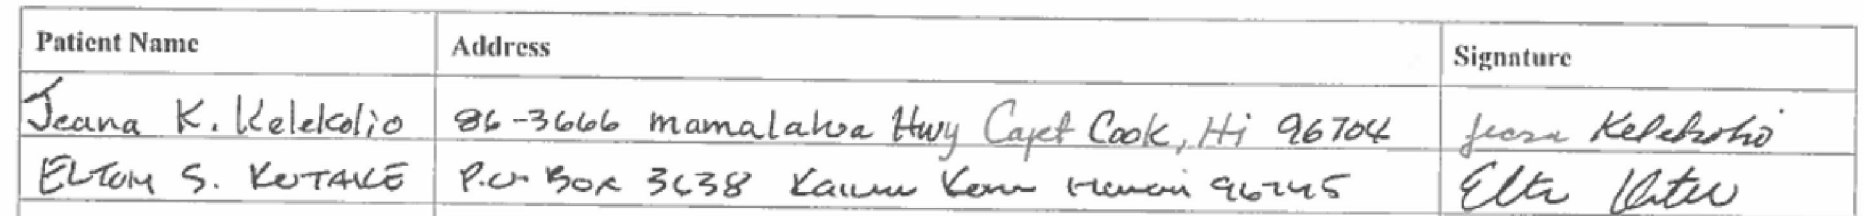 Patient Name Address Signature
Jeana K. Kelekolio 86-3666 mamalahoa Hwy Capt Cook, Hi 96704 Jeana Kelekolio
ELTON S. KUTAKE P.O. BOX 3638 Kailua Kona Hawaii 96745